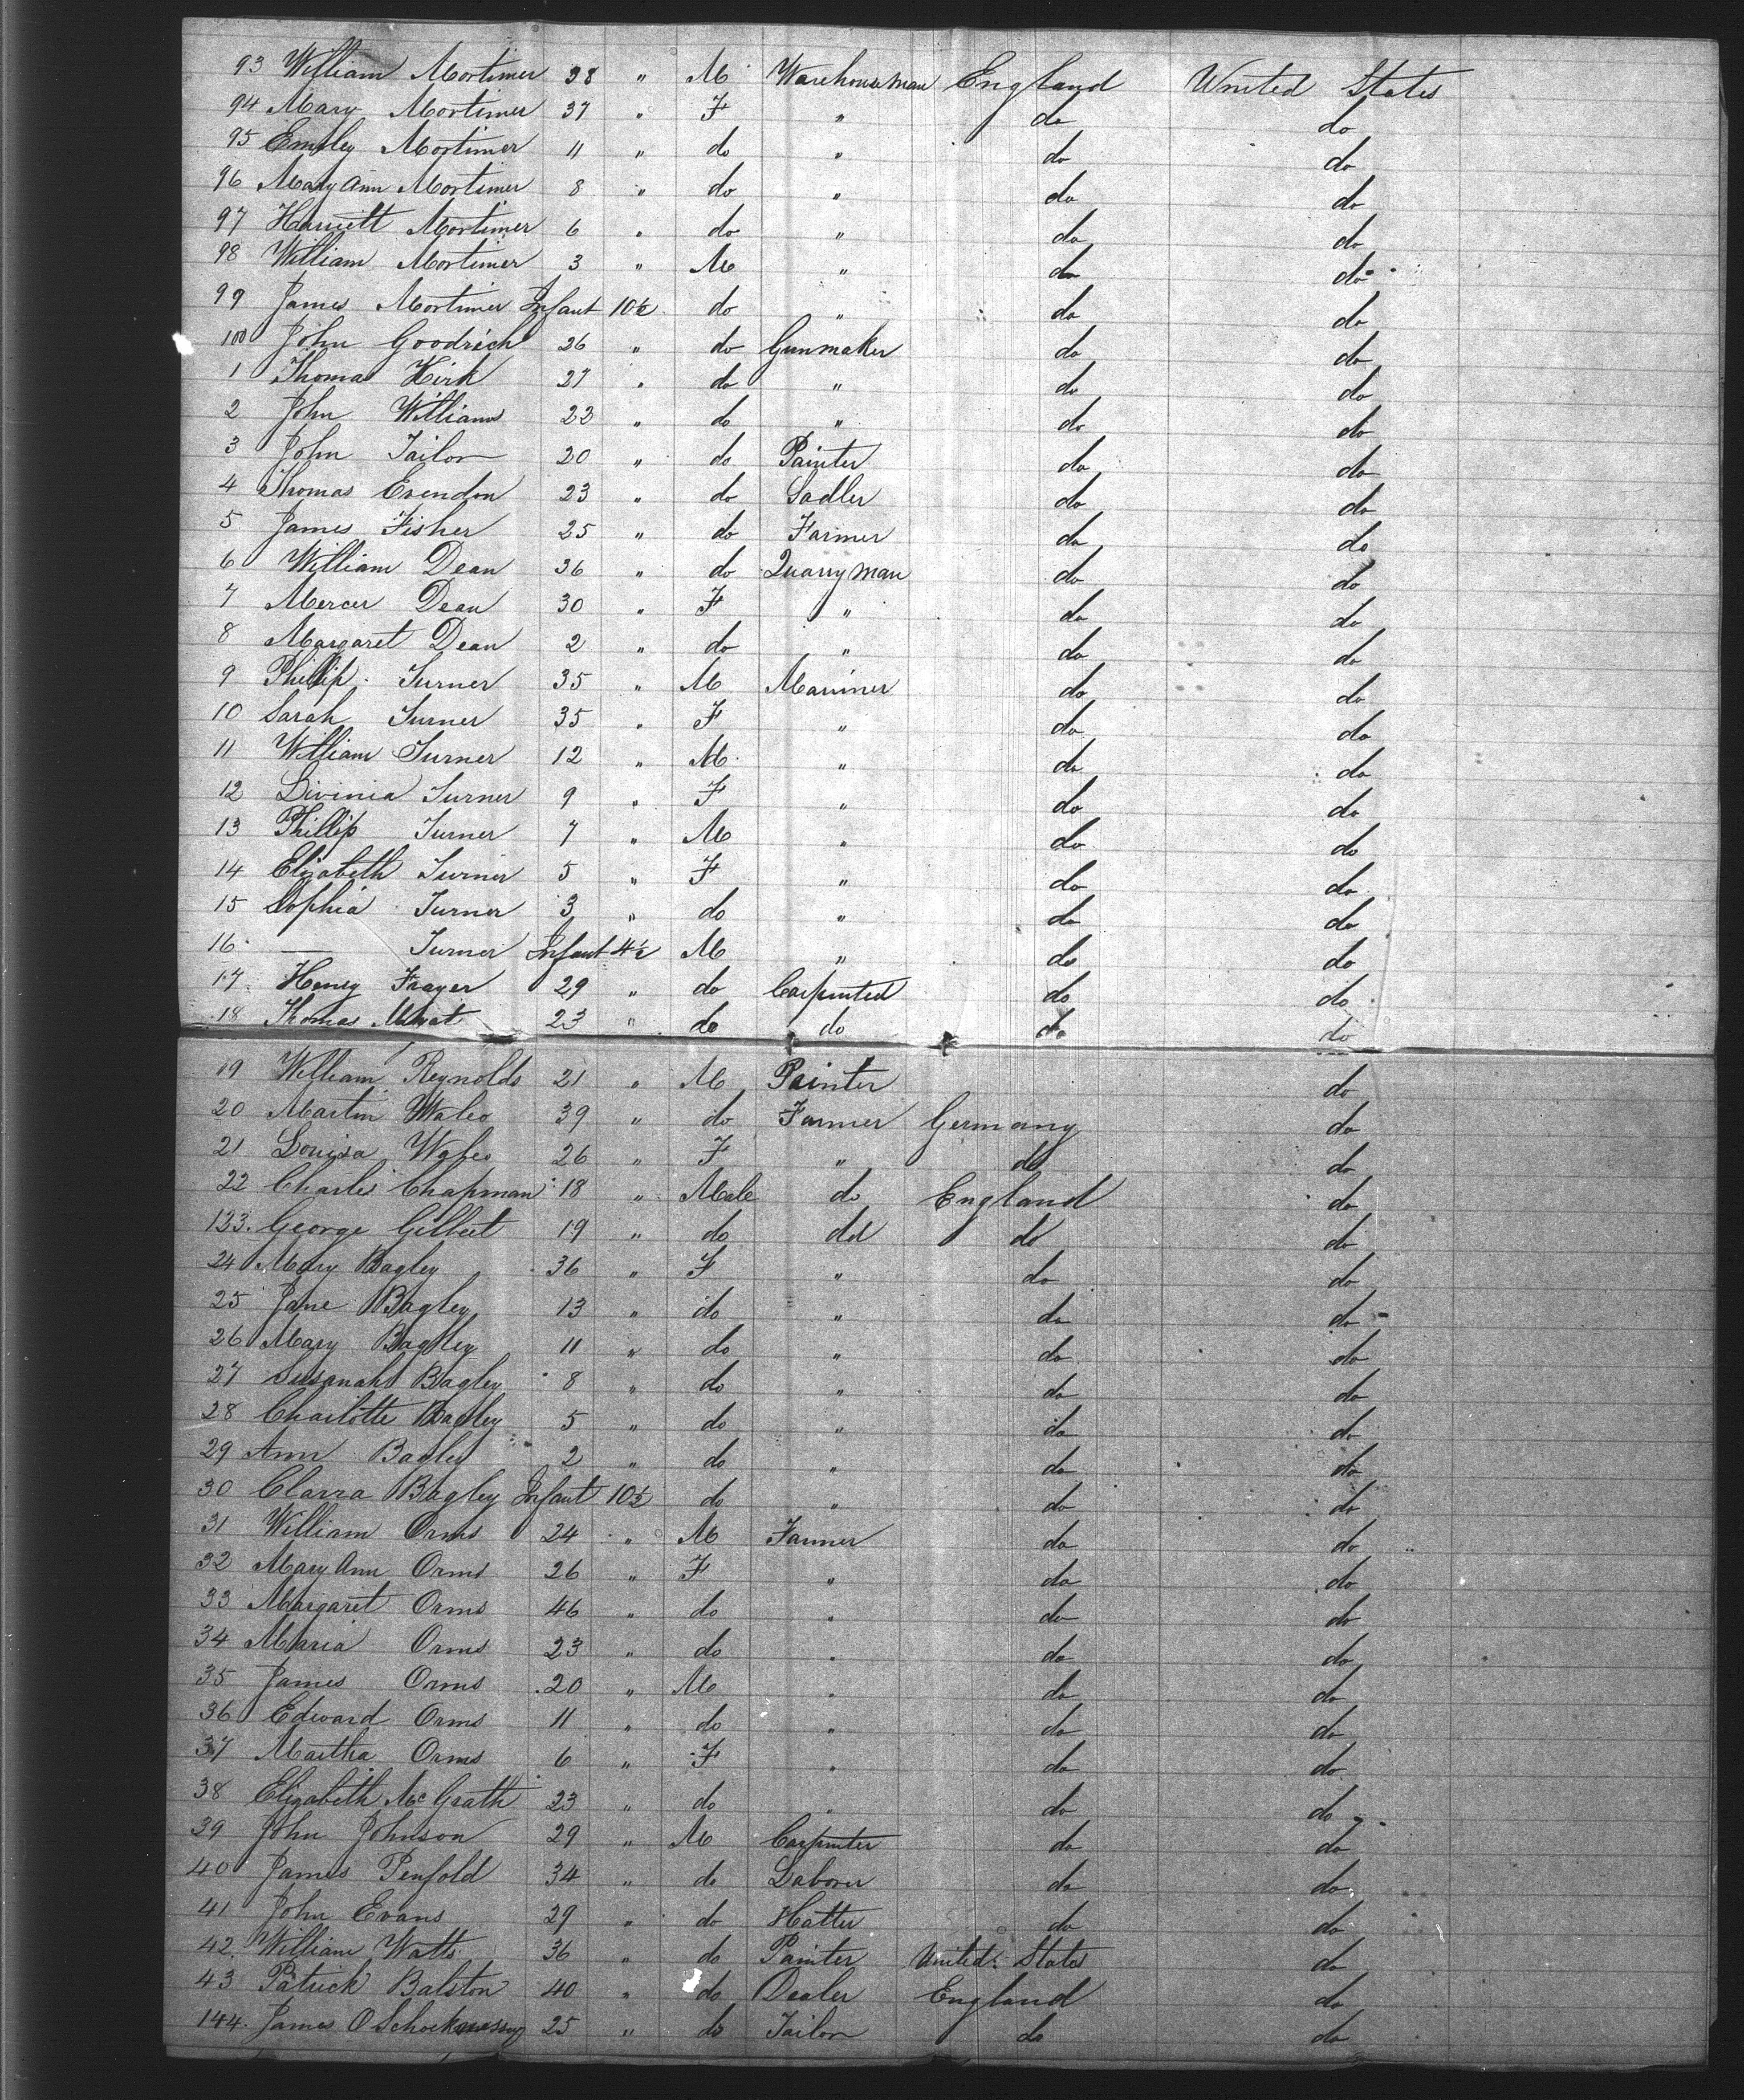 93 William Mortimer 38 " M Warehouseman England United States
94 Mary Mortimer 37 " F " do do
95 Emily Mortimer 11 " do " do do
96 Mary Ann Mortimer 8 " do " do do
97 Harriett Mortimer 6 " do " do do
98 William Mortimer 3 " M " do do
99 James Mortimer Infant 10½ do " do do
100 John Goodrich 26 " do Gunmaker do do
1 Thomas Kirk 27 " do " do do
2 John Williams 22 " do " do do
3 John Tailor 20 " do Painter do do
4 Thomas Evendon 23 " do Sadler do do
5 James Fisher 25 " do Farmer do do
6 William Dean 36 " do Quarryman do do
7 Mercer Dean 30 " F " do do
8 Margaret Dean 2 " do " do do
9 Phillip Turner 35 " M Marriner do do
10 Sarah Turner 35 " F " do do
11 William Turner 12 " M " do do
12 Livinia Turner 9 " F " do do
13 Phillip Turner 7 " M " do do
14 Elizabeth Turner 5 " F " do do
15 Sophia Turner 3 " do " do do
16 — Turner Infant 4½ M " do do
17 Henry Frayer 29 " do Carpinted do do
18 Thomas 23 " do do do do
19 William Reynolds 21 " M Painter do
20 Martin Wales 39 " do Farmer Germany do
21 Louisa Wales 26 " F " do do
22 Charles Chapman 18 " Male do England do
133. George Gilbert 19 " do do do do
24 Mary Bagley 36 " F " do do
25 Jane Bagley 13 " do " do do
26 Mary Bagley 11 " do " do do
27 Susanah Bagley 8 " do " do do
28 Charlotte Bagley 5 " do " do do
29 Ann Bagley 2 " do " do do
30 Clarra Bagley Infant 10½ do " do do
31 William Orms 24 " M Farmer do do
32 Mary Ann Orms 26 " F " do do
33 Margaret Orms 46 " do " do do
34 Maria Orms 23 " do " do do
35 James Orms 20 " M " do do
36 Edward Orms 11 " do " do do
37 Martha Orms 6 " F " do do
38 Elizabeth McGrath 23 " do " do do
39 John Johnson 29 " M Carpinter do do
40 James Penfold 34 " do Laborer do do
41 John Evans 29 " do Hatter do do
42 William Watts 36 " do Painter United States do
43 Patrick Balston 40 " do Dealer England do
144. James 25 " do Tailor do do